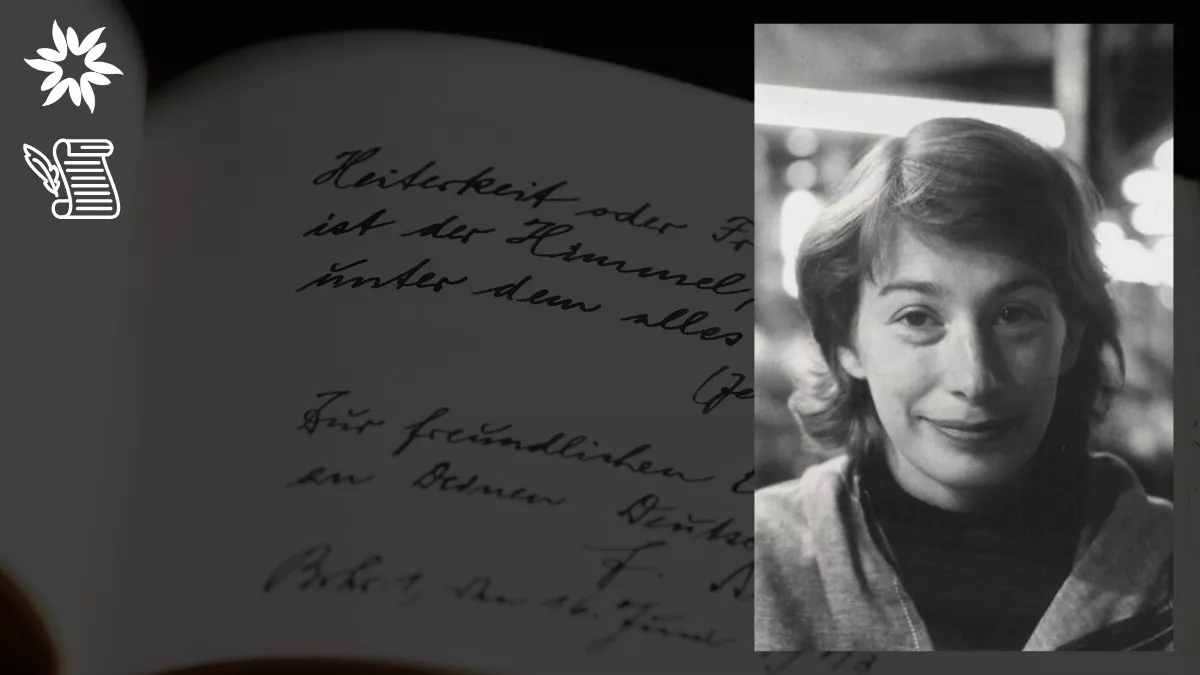 Heiterkeit oder
ist der Himmel,
unter dem alles
Zur freundlichen
an Deinen
F.
den 16. Juni